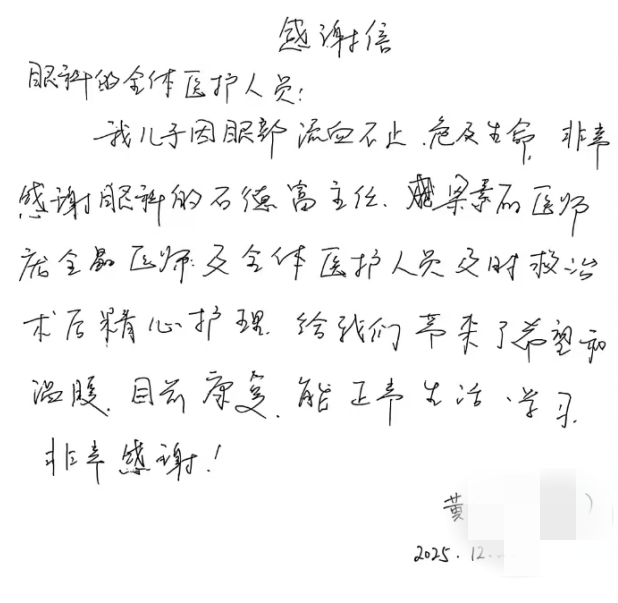 感谢信
眼科的全体医护人员:
我儿子因眼部流血不止.危及生命,非常
感谢眼科的石德富主任.梁素丽医师
庞全晶医师及全体医护人员及时救治
术后精心护理.给我们带来了希望和
温暖.目前康复.能正常生活、学习.
非常感谢!
黄 )
2025.12.